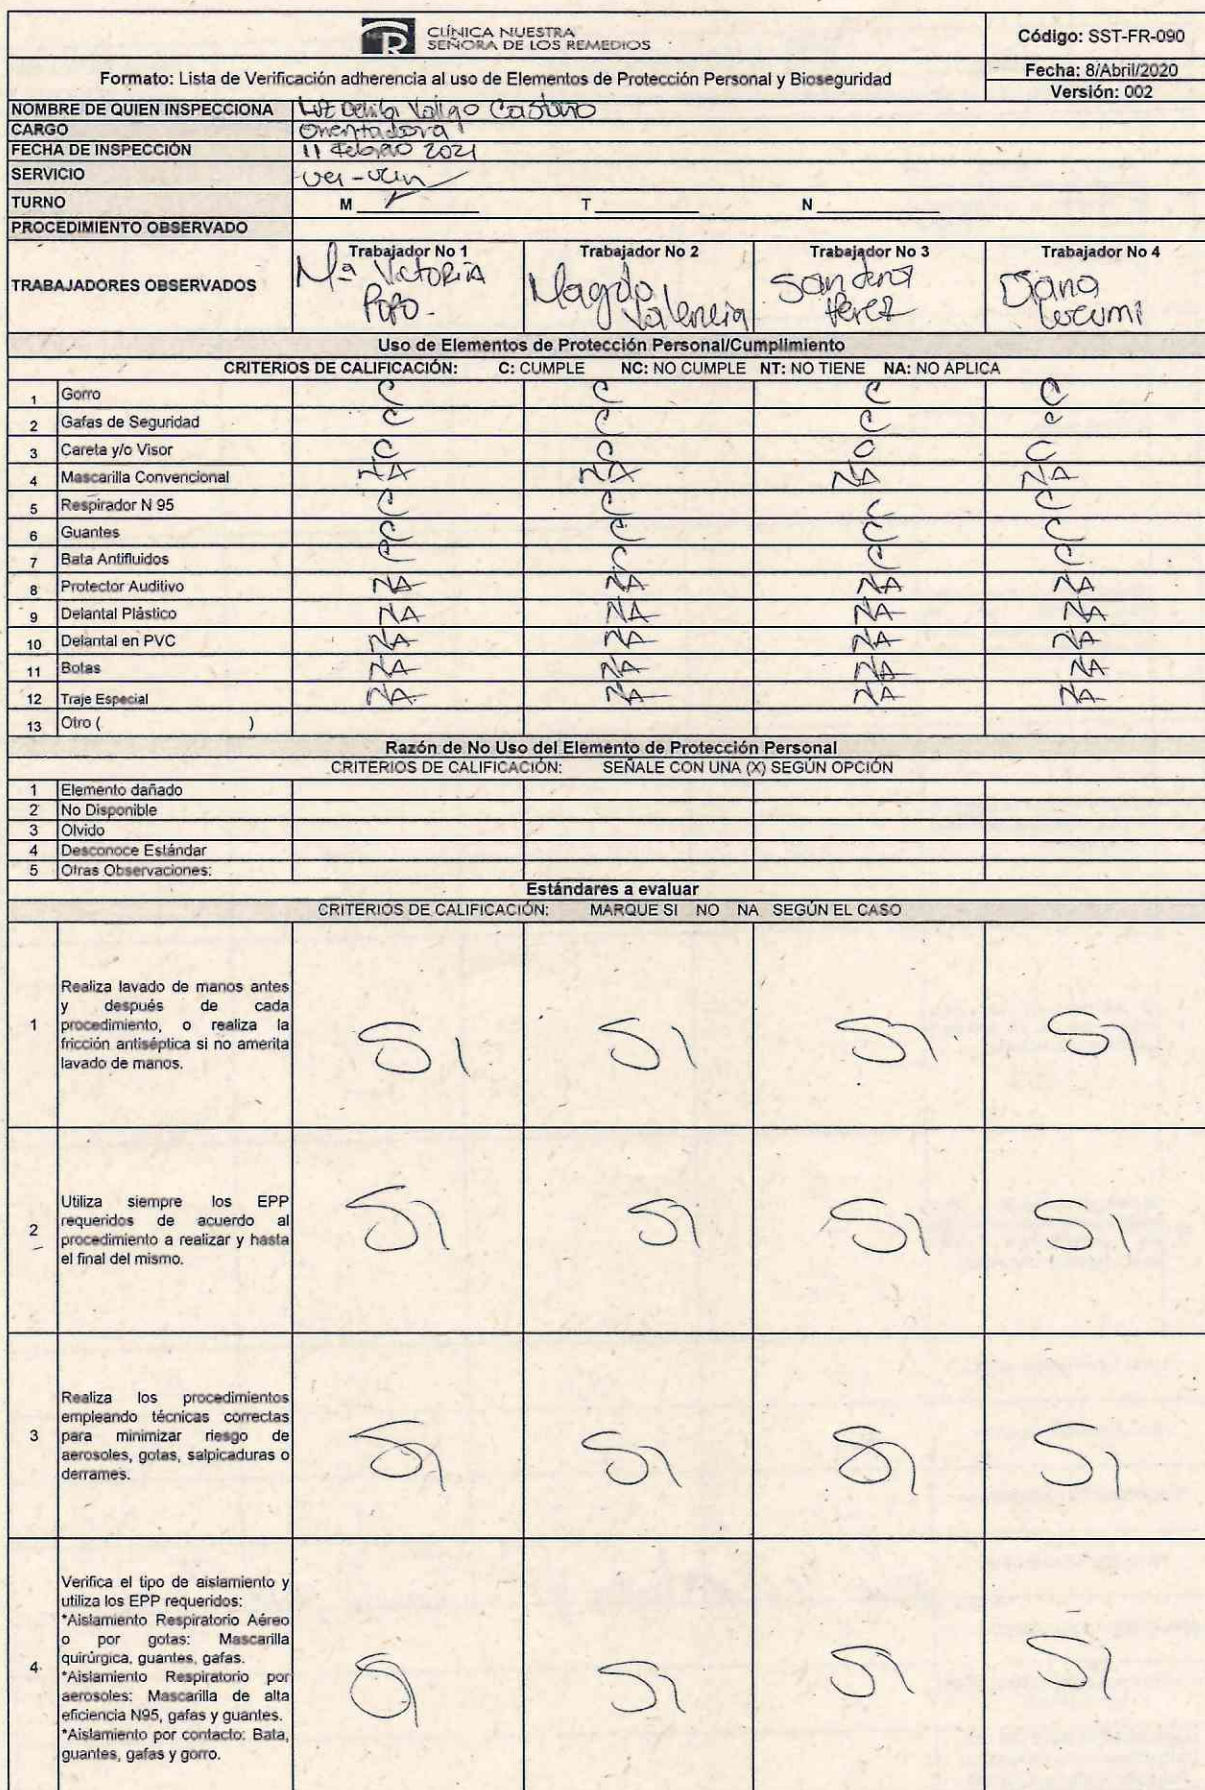 CLÍNICA NUESTRA
SEÑORA DE LOS REMEDIOS
Código: SST-FR-090
Formato: Lista de Verificación adherencia al uso de Elementos de Protección Personal y Bioseguridad
Fecha: 8/Abril/2020
Versión: 002
NOMBRE DE QUIEN INSPECCIONA Castaño
CARGO Orientadora
FECHA DE INSPECCIÓN 11 Febrero 2021
SERVICIO uci-ucin
TURNO M T N
PROCEDIMIENTO OBSERVADO
Trabajador No 1 Trabajador No 2 Trabajador No 3 Trabajador No 4
TRABAJADORES OBSERVADOS
Mª Victoria Popo.
Magda Valencia
Sandra Perez
Diana Lucumi
Uso de Elementos de Protección Personal/Cumplimiento
CRITERIOS DE CALIFICACIÓN: C: CUMPLE NC: NO CUMPLE NT: NO TIENE NA: NO APLICA
1 Gorro C C C C
2 Gafas de Seguridad C C C C
3 Careta y/o Visor C C C C
4 Mascarilla Convencional NA NA NA NA
5 Respirador N 95 C C C C
6 Guantes C C C C
7 Bata Antifluidos C C C C
8 Protector Auditivo NA NA NA NA
9 Delantal Plástico NA NA NA NA
10 Delantal en PVC NA NA NA NA
11 Botas NA NA NA NA
12 Traje Especial NA NA NA NA
13 Otro ( )
Razón de No Uso del Elemento de Protección Personal
CRITERIOS DE CALIFICACIÓN: SEÑALE CON UNA (X) SEGÚN OPCIÓN
1 Elemento dañado
2 No Disponible
3 Olvido
4 Desconoce Estándar
5 Otras Observaciones:
Estándares a evaluar
CRITERIOS DE CALIFICACIÓN: MARQUE SI NO NA SEGÚN EL CASO
1
Realiza lavado de manos antes
y después de cada
procedimiento, o realiza la
fricción antiséptica si no amerita
lavado de manos.
SI SI SI SI
2
Utiliza siempre los EPP
requeridos de acuerdo al
procedimiento a realizar y hasta
el final del mismo.
SI SI SI SI
3
Realiza los procedimientos
empleando técnicas correctas
para minimizar riesgo de
aerosoles, gotas, salpicaduras o
derrames.
SI SI SI SI
4
Verifica el tipo de aislamiento y
utiliza los EPP requeridos:
*Aislamiento Respiratorio Aéreo
o por gotas: Mascarilla
quirúrgica, guantes, gafas.
*Aislamiento Respiratorio por
aerosoles: Mascarilla de alta
eficiencia N95, gafas y guantes.
*Aislamiento por contacto: Bata,
guantes, gafas y gorro.
SI SI SI SI